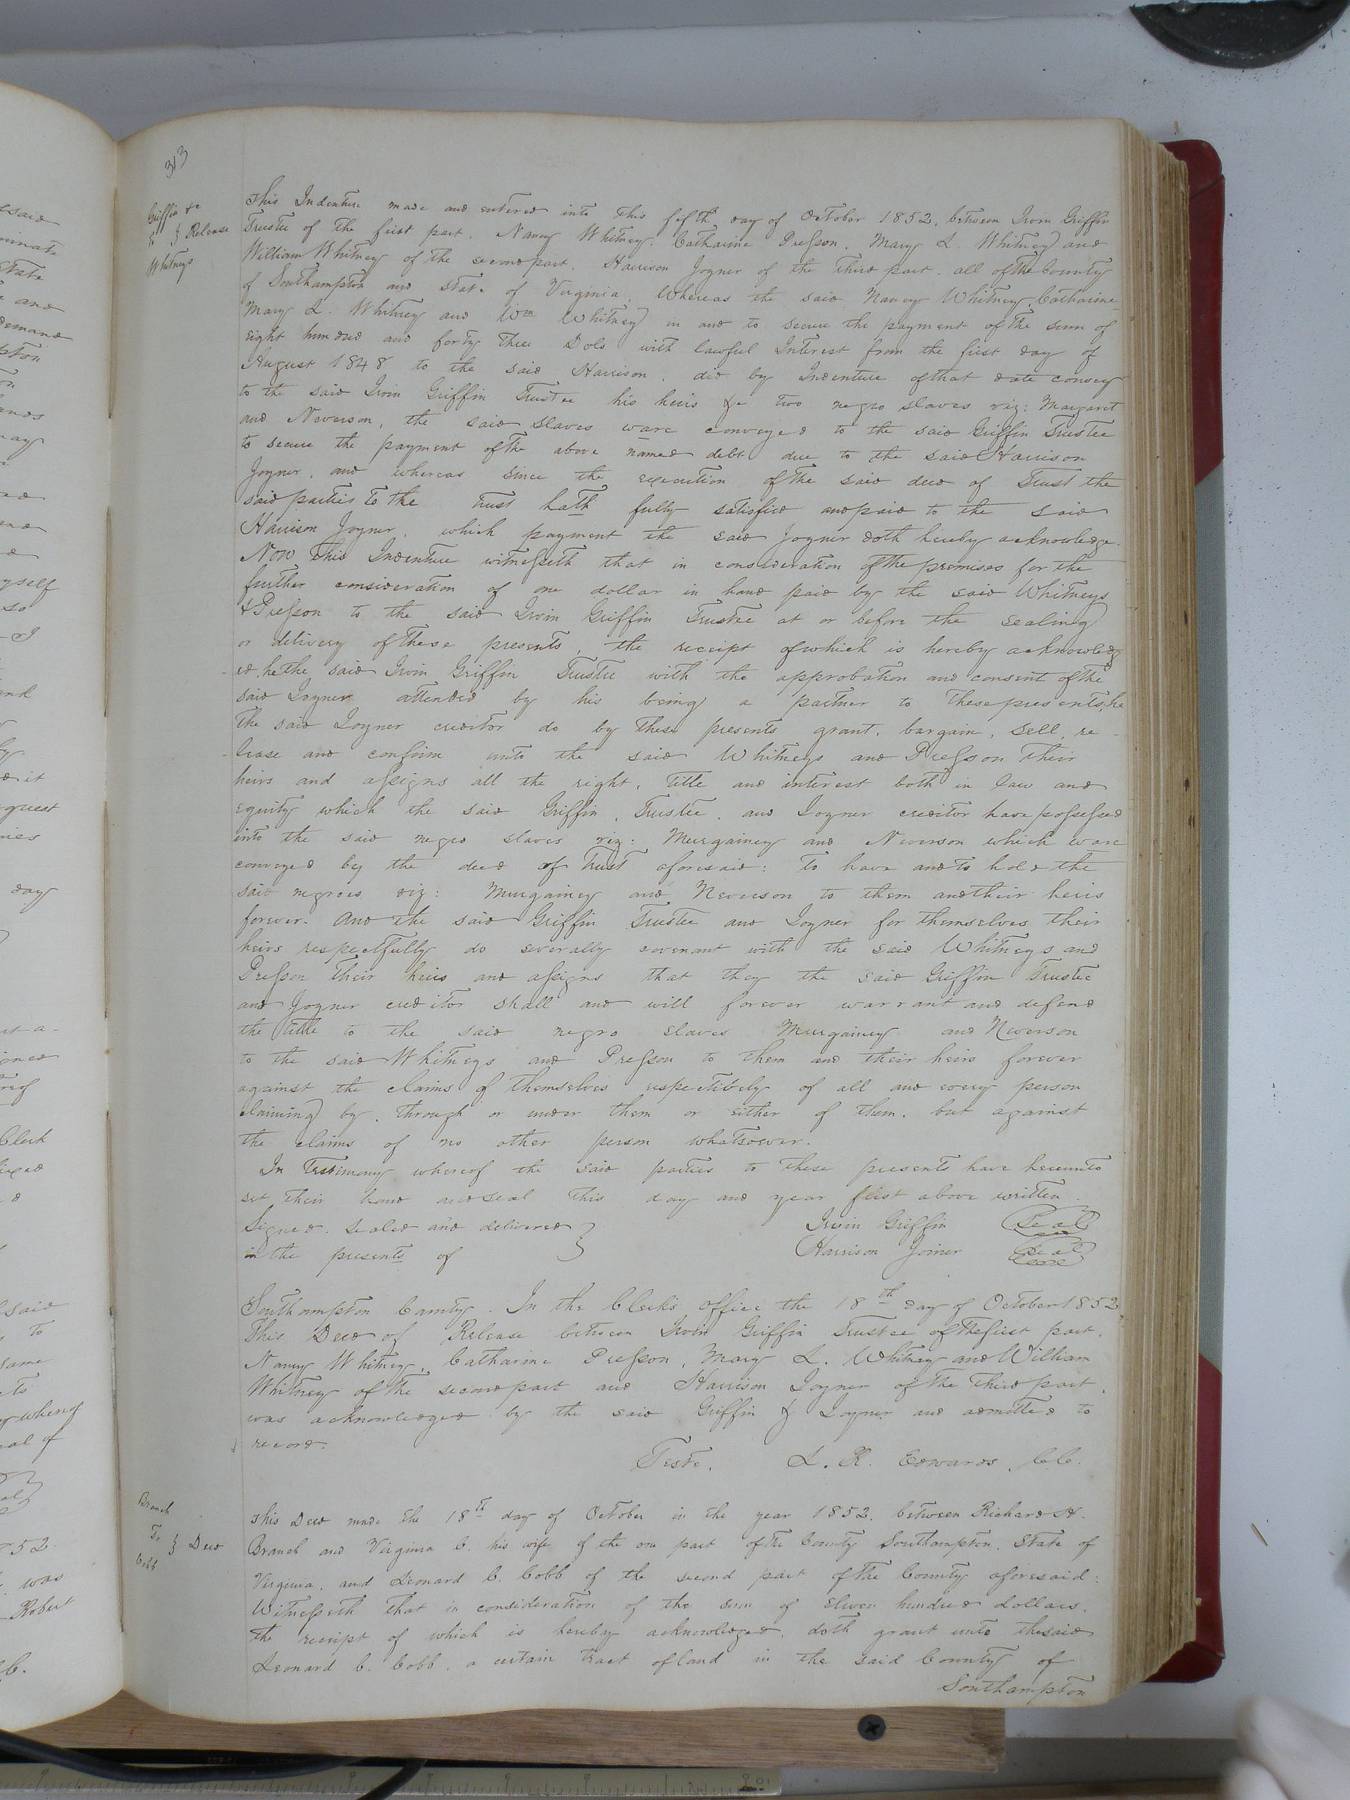 313
Griffin &c
To } Release
Whitneys
This Indenture made and entered into this fifth day of October 1852, between Irvin Griffin
Trustee of the first part, Nancy Whitney, Catharine Presson, Mary L. Whitney and
William Whitney of the second part, Harrison Joyner of the third part, all of the County
of Southampton and State of Virginia, Whereas the said Nancy Whitney, Catharine
Mary L. Whitney and Wm Whitney in and to secure the payment of the sum of
eight hundred and forty three Dols with lawful Interest from the first day of
August 1848 to the said Harrison, did by Indenture of that date convey
to the said Irvin Griffin Trustee his heirs &c two negro slaves viz: Margaret
and Neverson, the said slaves ware conveyed to the said Griffin Trustee
to secure the payment of the above named debt due to the said Harrison
Joyner, and whereas since the execution of the said deed of Trust the
said parties to the Trust hath fully satisfied and paid to the said
Harrison Joyner, which payment the said Joyner doth hereby acknowledge.
Now this Indenture witnesseth that in consideration of the premises for the
further consideration of one dollar in hand paid by the said Whitneys
& Presson to the said Irvin Griffin Trustee at or before the sealing
or delivery of these presents, the receipt of which is hereby acknowledg
-ed, he the said Irvin Griffin Trustee with the approbation and consent of the
said Joyner attended by his being a partner to these presents, he
the said Joyner creditor do by these presents grant, bargain, sell, re-
-lease and confirm unto the said Whitneys and Presson their
heirs and assigns all the right, title and interest both in law and
equity which the said Griffin, Trustee, and Joyner creditor have possessed
into the said negro slaves viz: Murgainey and Neverson which ware
conveyed by the deed of Trust aforesaid: To have and to hold the
said negroes viz: Murgainey and Neverson to them and their heirs
forever. And the said Griffin Trustee and Joyner for themselves their
heirs respectfully do severally covenant with the said Whitneys and
Presson their heirs and assigns that they the said Griffin Trustee
and Joyner creditor shall and will forever warrant and defend
the title to the said negro slaves Murgainey and Neverson
to the said Whitneys and Presson to them and their heirs forever
against the claims of themselves respectively of all and every person
claiming by, through or under them or either of them, but against
the claims of no other person whatsoever.
In Testimony whereof the said parties to these presents have hereunto
set their hand and seal this day and year first above written.
Signed, Sealed and delivered } Irvin Griffin Seal
in the presents of } Harrison Joiner Seal
Southampton County. In the Clerk's office the 18th day of October 1852
This Deed of Release between Irvin Griffin Trustee of the first part,
Nancy Whitney, Catharine Presson, Mary L. Whitney and William
Whitney of the second part and Harrison Joyner of the third part,
was acknowledged by the said Griffin & Joyner and admitted to
record.
Teste, L. R. Edwards, C.C.
Branch
To } Deed
Cobb
This Deed made the 18th day of October in the year 1852, between Richard H.
Branch and Virginia C. his wife of the one part of the County Southampton, State of
Virginia, and Leonard C. Cobb of the second part of the County aforesaid:
Witnesseth that in consideration of the sum of Eleven hundred dollars,
the receipt of which is hereby acknowledged, doth grant unto the said
Leonard C. Cobb, a certain tract of land in the said County of
Southampton